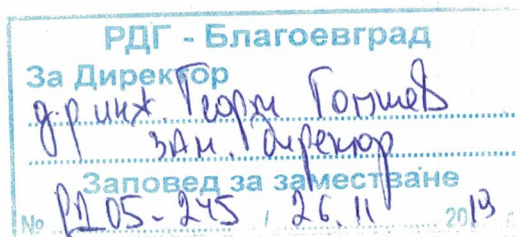 РДГ - Благоевград
За Директор
д-р инж. Георги Гоншев
зам. директор
Заповед за заместване
№ РД 05-245 / 26.11 2019 г